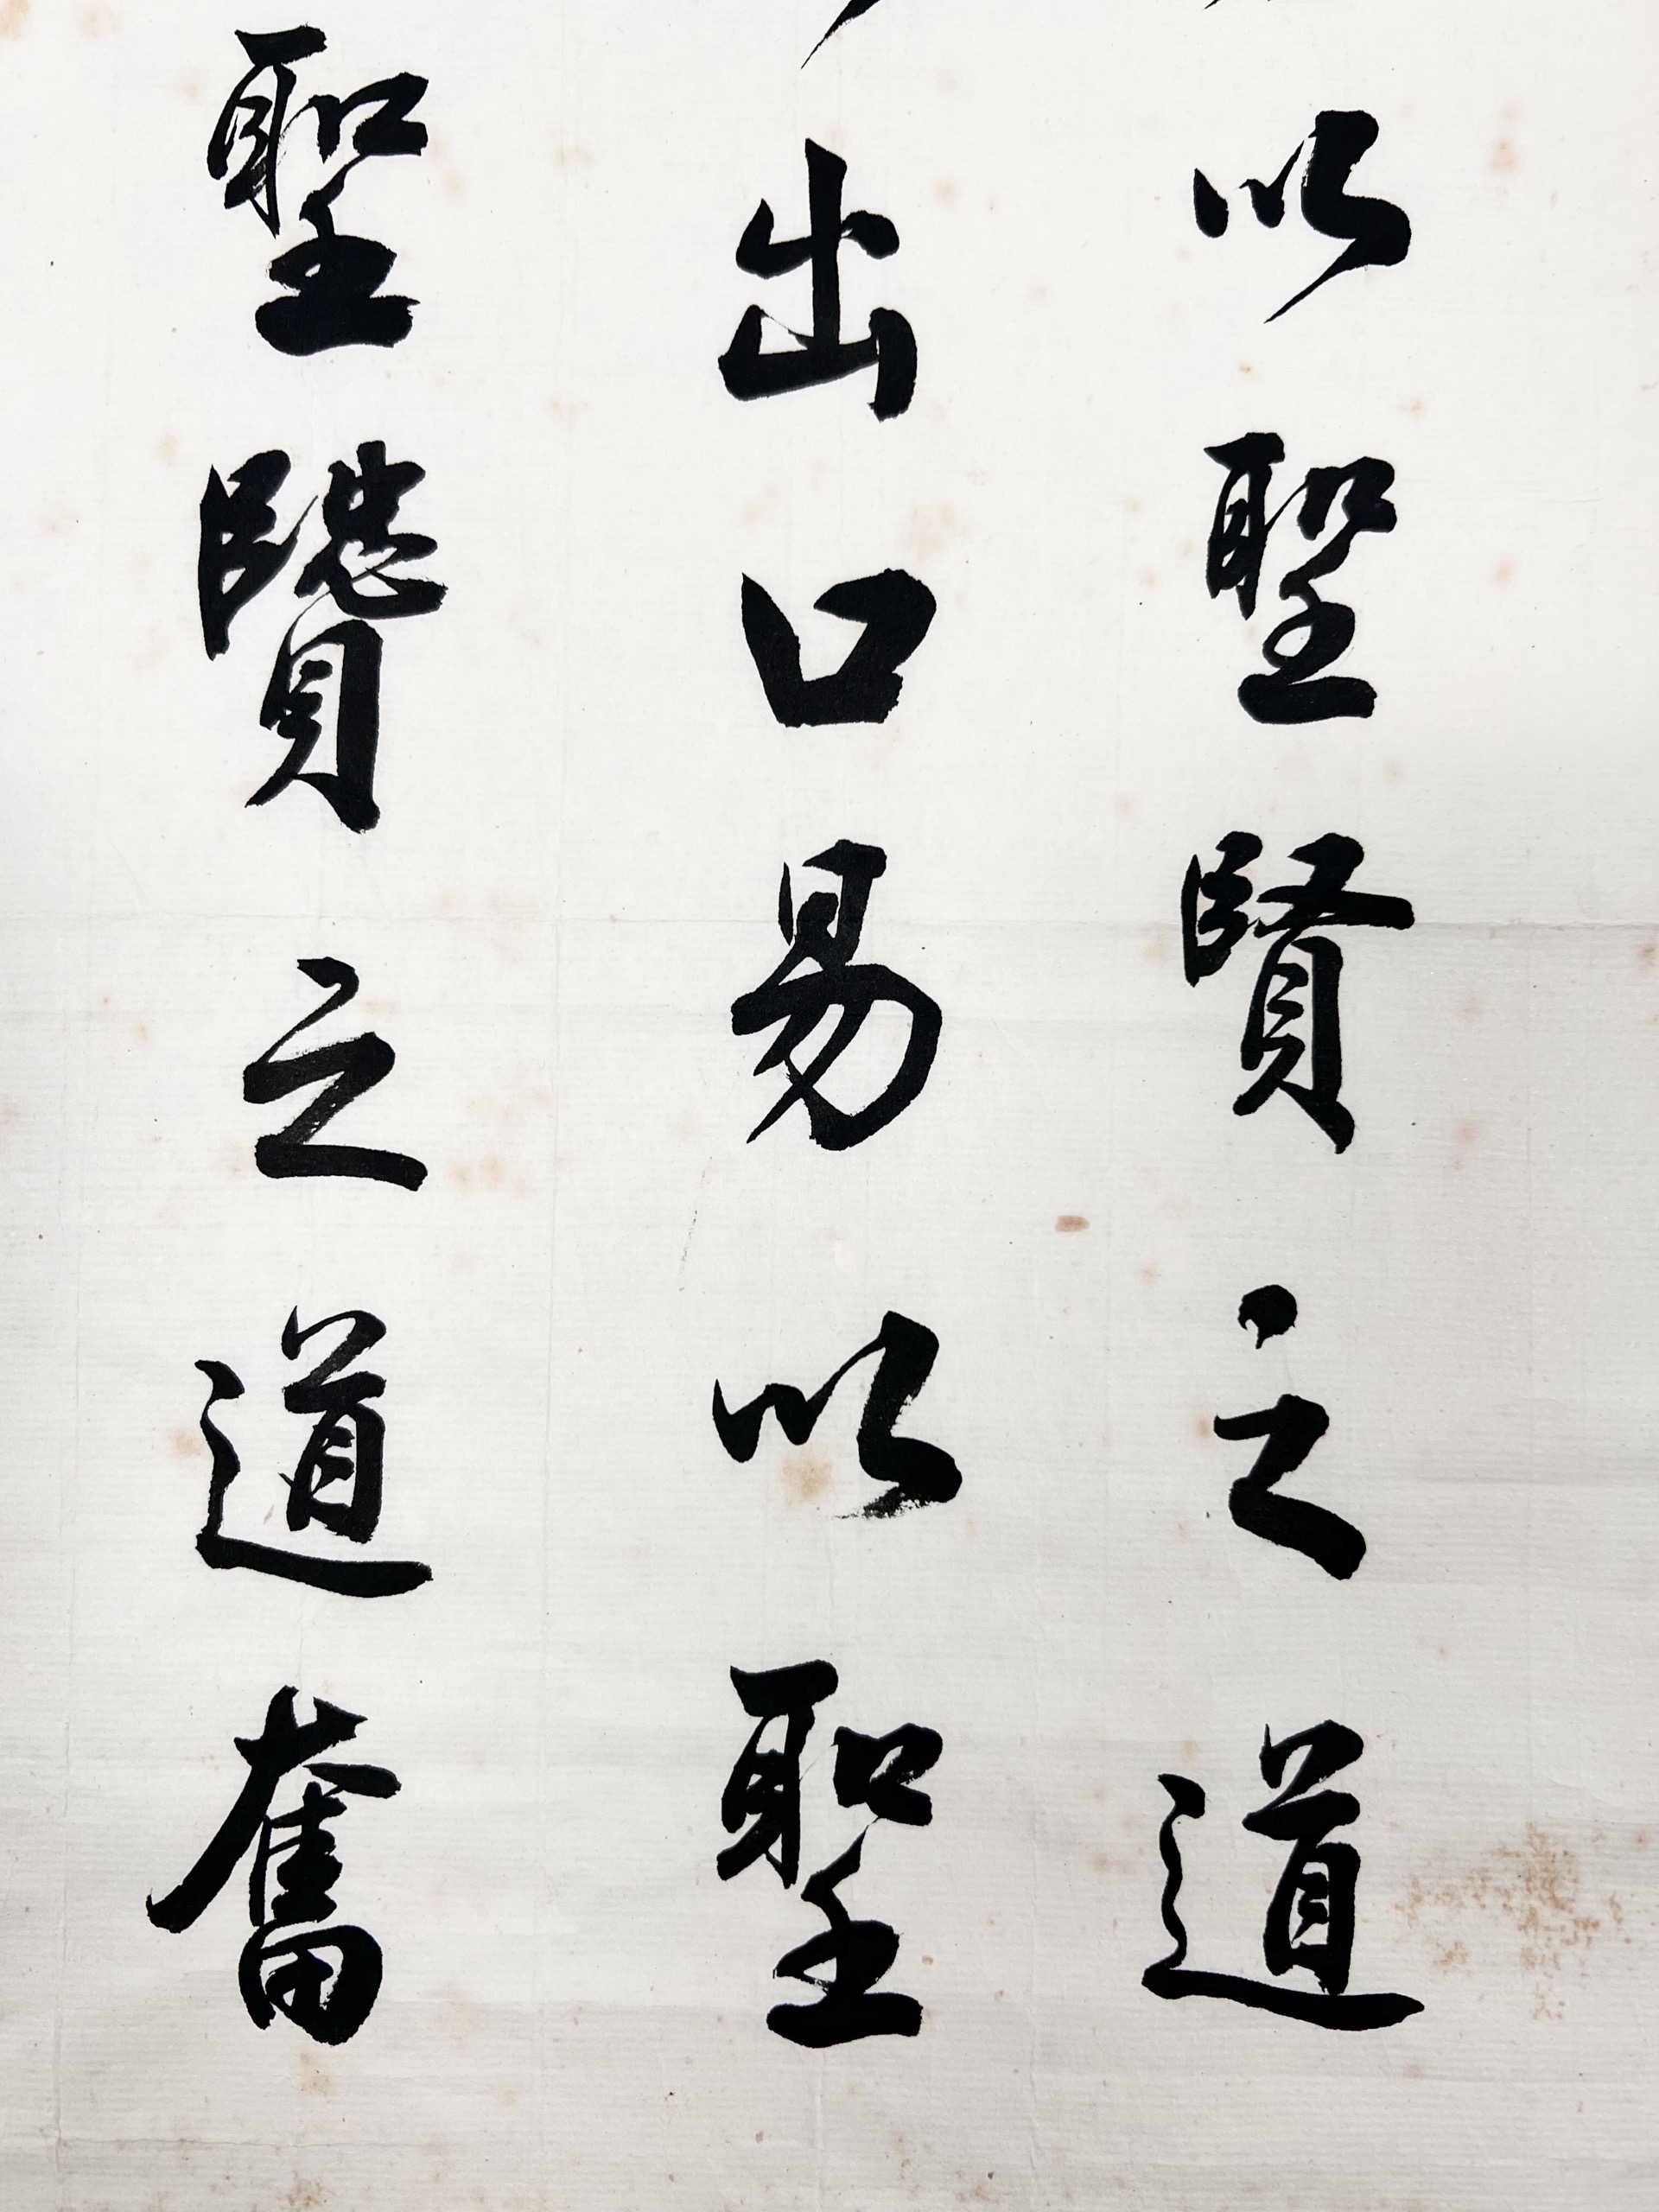 以聖賢之道
出口易以聖
聖賢之道奮